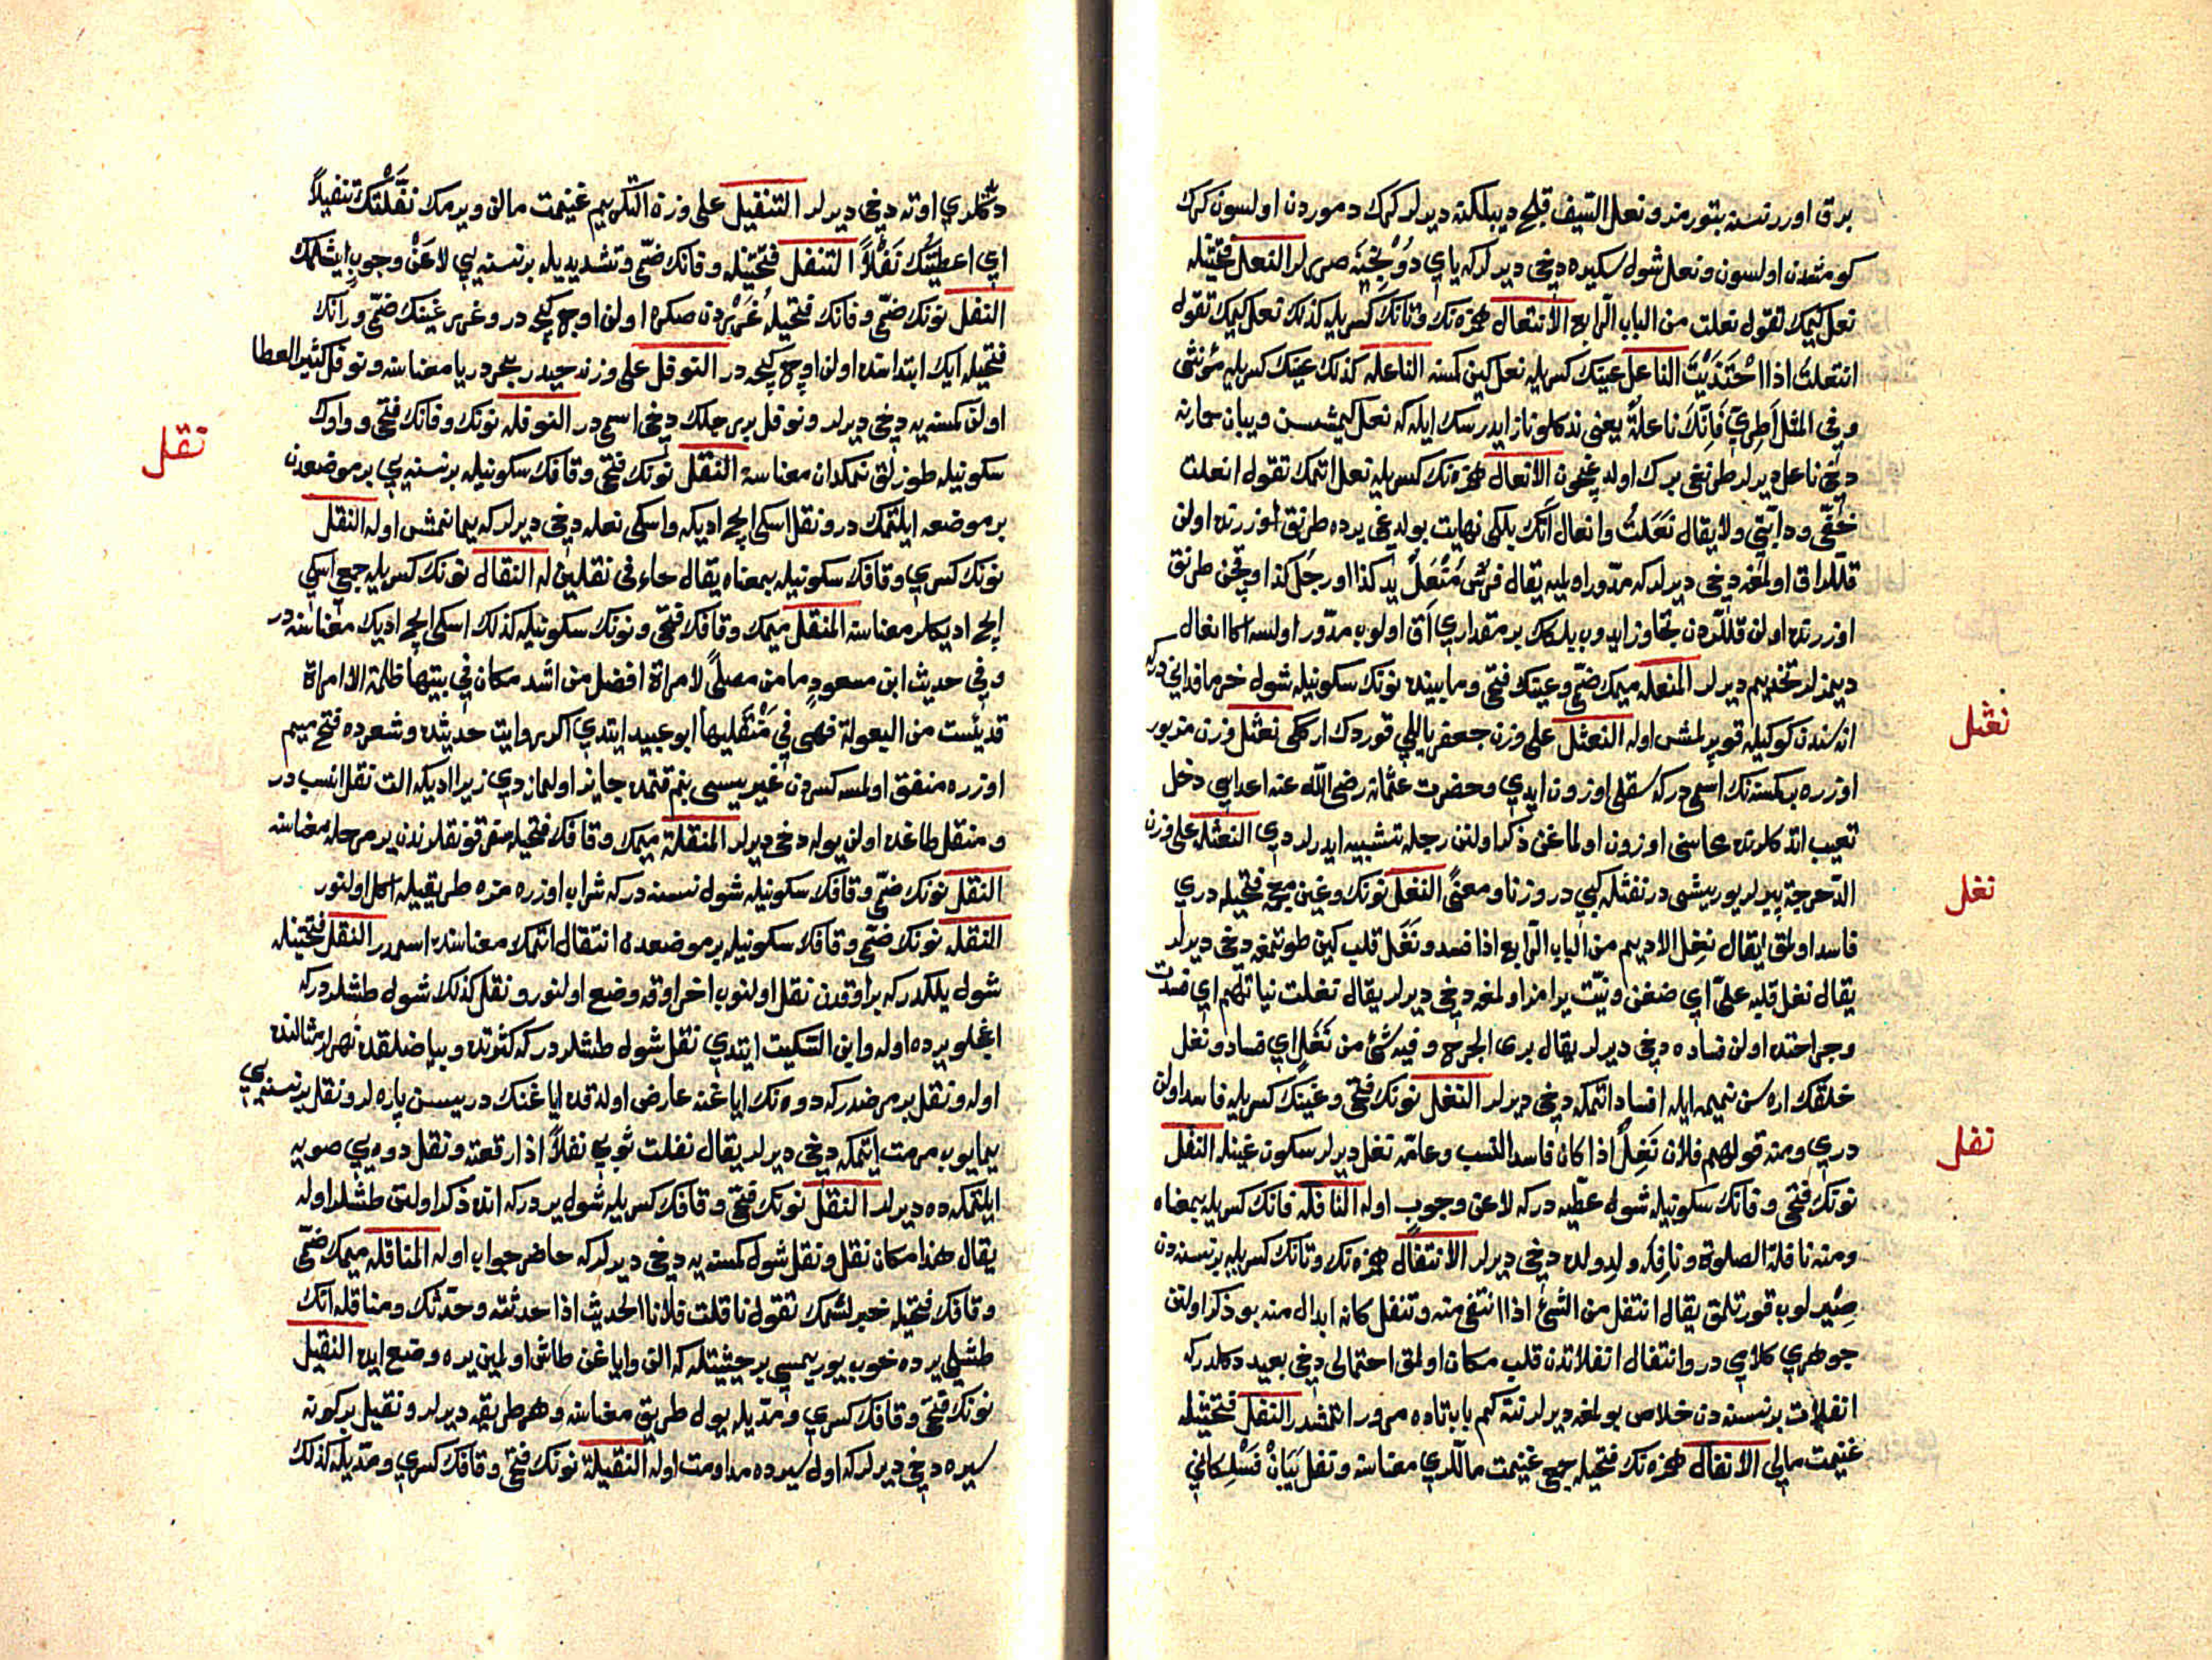 يرق اوزرنسنه بتورمز و نعل السيف قلج ديبلكنه ديرلر كرك دموردن اولسون كرك
كومشدن اولسون و نعل شول سكيره دخي ديرلر كه ياي دونجينه صررلر النعل فتحتيله
نعل كيمك تقول نعلت من الباب الرابع الانتعال همزه نك و تانك كسريله كذلك نعل كيمك تقول
انتعلت اذا احتذيت الناعل عينك كسريله نعل كين كمسنه الناعله كذلك عينك كسريله مؤنثى
و في المثل اطري فانك ناعلة يعنى ناز ايدرسك ايله كه نعل كيمشسن و يبان حمارنه
دخي ناعل ديرلر طرنغى برك اولديغيچون الانعال همزه نك كسريله نعل اتمك تقول انعلت
خفّي و دابّتي و لا يقال نعلت و انعال آتك بلكى نهايت بولديغى يرده طرنق اوزرنده اولن
قللر اق اولمغه دخي ديرلر كه مدور اولميه يقال فرس منعل يد كذا او رجل كذا و قچن طرنق
اوزرنده اولن قللردن تجاوز ايدوب بلكك بر مقداري اق اولوب مدور اولسه اكا انعال
ديمزلر تخديم ديرلر المنعله ميمك ضمّي و عينك فتحي و مابينده نونك سكونيله شول خرما فداني در كه
اناسندن كوكيله قوپرلمش اوله النعثل على وزن جعفر ياللي قوردك ارككى نعثل وزن مزبور
اوزره بر كمسنه نك اسمي در كه سقلي اوزون ايدي و حضرت عثمانه رضي الله عنه اعداسي دخل
تعيب اتدكلرنده محاسنى اوزون اولماغن ذكر اولنن رجله تشبيه ايدرلر دي النعثله على وزن
الدحرجة پيرلر يوريشى در نقثله كبي در وزنا و معنًى النغل نونك و غين معجمه فتحيله دري
فاسد اولمق يقال نغل الاديم من الباب الرابع اذا فسد و نغل قلب كين طوتمغه دخي ديرلر
يقال نغل قلبه علىّ اي ضغن و نيّت يرامز اولمغه دخي ديرلر يقال نغلت نيّاتهم اي فسدت
و جراحتده اولن فساده دخي ديرلر يقال برى الجرح و فيه شئ من نغل اي فساد و نغل
خلقك اره سن نميمه ايله افساد اتمكه دخي ديرلر النغل نونك فتحي و غينك كسريله فاسد اولن
دري و منه قولهم فلان نغل اذا كان فاسد النسب و عامه نغل ديرلر سكون غينله النفل
نونك فتحي و فانك سكونيله شول عطيه در كه لا عن وجوب اوله النافله فانك كسريله بمعناه
و منه نافلة الصلوة و نافله ولد ولده دخي ديرلر الانتفال همزه نك و تانك كسريله بر نسنه دن
صيّرلوب قورتلمق يقال انتفل من الشئ اذا انتفى منه و تنفل كانه ابدال منه بو ذكر اولنن
جوهري كلامي در و انتفال انفلاتدن قلب مكان اولمق احتمالى دخي بعيد دكلدر كه
انفلات بر نسنه دن خلاص بولمغه ديرلر نته كم باب تاده مرور اتمشدر النفل فتحتيله
غنيمت مالي الانفال همزه نك فتحيله جمعي غنيمت ماللري معناسنه و نفل
نغثل
نغل
نفل
دكلري اوته دخي ديرلر التنفيل على وزن التكريم غنيمت مالن ويرمك نفّلتك تنفيلاً
اي اعطيتك نفلاً التنفل فتحتيله و فانك ضمّي و تشديديله بر نسنه يي لا عن وجوب ايشلمك
النفل نونك ضمّي و فانك فتحيله غرردن صكره اولن اوچ كيجه در و غرر غينك ضمّي و رانك
فتحيله آيك ابتداسنده اولن اوچ كيجه در النوفل على وزن حيدر بحر دريا معناسنه و نوفل كثير العطا
اولن كمسنه يه دخي ديرلر و نوفل بر رجلك دخي اسمي در النوفله نونك و فانك فتحي و واوك
سكونيله طوزلق نمكدان معناسنه النقل نونك فتحي و قافك سكونيله بر نسنه يي بر موضعدن
بر موضعه ايلتمك در و نقل اسكى ايچ اديكه و اسكى نعله دخي ديرلر كه يمانمش اوله النقل
نونك كسري و قافك سكونيله بمعناه يقال جاء في نقلين له النقال نونك كسريله جمعي اسكي
ايچ اديكلر معناسنه المنقل ميمك و قافك فتحي و نونك سكونيله كذلك اسكى ايچ اديك معناسنه در
و في حديث ابن مسعودٍ ما من مصلًّى لامراة افضل من اشد مكان في بيتها ظلمة الا امراة
قد يئست من البعولة فهي في منقليها ابو عبيد ايتدي اكر روايت حديثده و شعرده فتح ميم
اوزره متفق اولمسه كسردن غيريسى بنم قتمده جايز اولماز دي زيرا اديكه الت نقل انسب در
و منقل طاغده اولن يوله دخي ديرلر المنقلة ميمك و قافك فتحيله سفر قونقلرندن بر مرحله معناسنه
النقل نونك ضمّي و قافك سكونيله شول نسنه در كه شراب اوزره مزه طريقيله اكل اولنور
النقله نونك ضمّي و قافك سكونيله بر موضعدن انتقال اتمك معناسنده اسمدر النقل فتحتيله
شول يلكدر كه بر اوقدن نقل اولنوب اخر اوقه وضع اولنور و نقل كذلك شول طشلردر كه
اغجلو يرده اوله و ابن السكيت ايتدي نقل شول طشلر در كه كثوتده و بياضلقده نهرلر مثالنده
اوله و نقل بر مرضدر كه دوه نك اياغنه عارض اولدقده اياغنك دريسن پاره لر و نقل بر نسنه يي
يمايوب مرمت ايتمكه دخي ديرلر يقال نقلت ثوبي نقلاً اذا رقعته و نقل دوه يي صويه
ايلتمكه ده ديرلر النقل نونك فتحي و قافك كسريله شول يردر كه انده ذكر اولنن طشلر اوله
يقال هذا مكان نقل و نقل شول كمسنه يه دخي ديرلر كه حاضر جواب اوله المناقله ميمك ضمّي
و قافك فتحيله خبرلشمك تقول ناقلت فلانا الحديث اذا حدثته و حدّثك و مناقله اتك
طشلي يرده خوب يوريمسي بر حيثيتله كه الن و اياغن طاش اولمين يره وضع ايده النقيل
نونك فتحي و قافك كسري و مدّيله يول طريق معناسنه و هر طريقه ديرلر و نقيل بر كونه
سيره دخي ديرلر كه اول سيرده مداومت اوله النقيلة نونك فتحي و قافك كسري و مدّيله كذلك
نقل